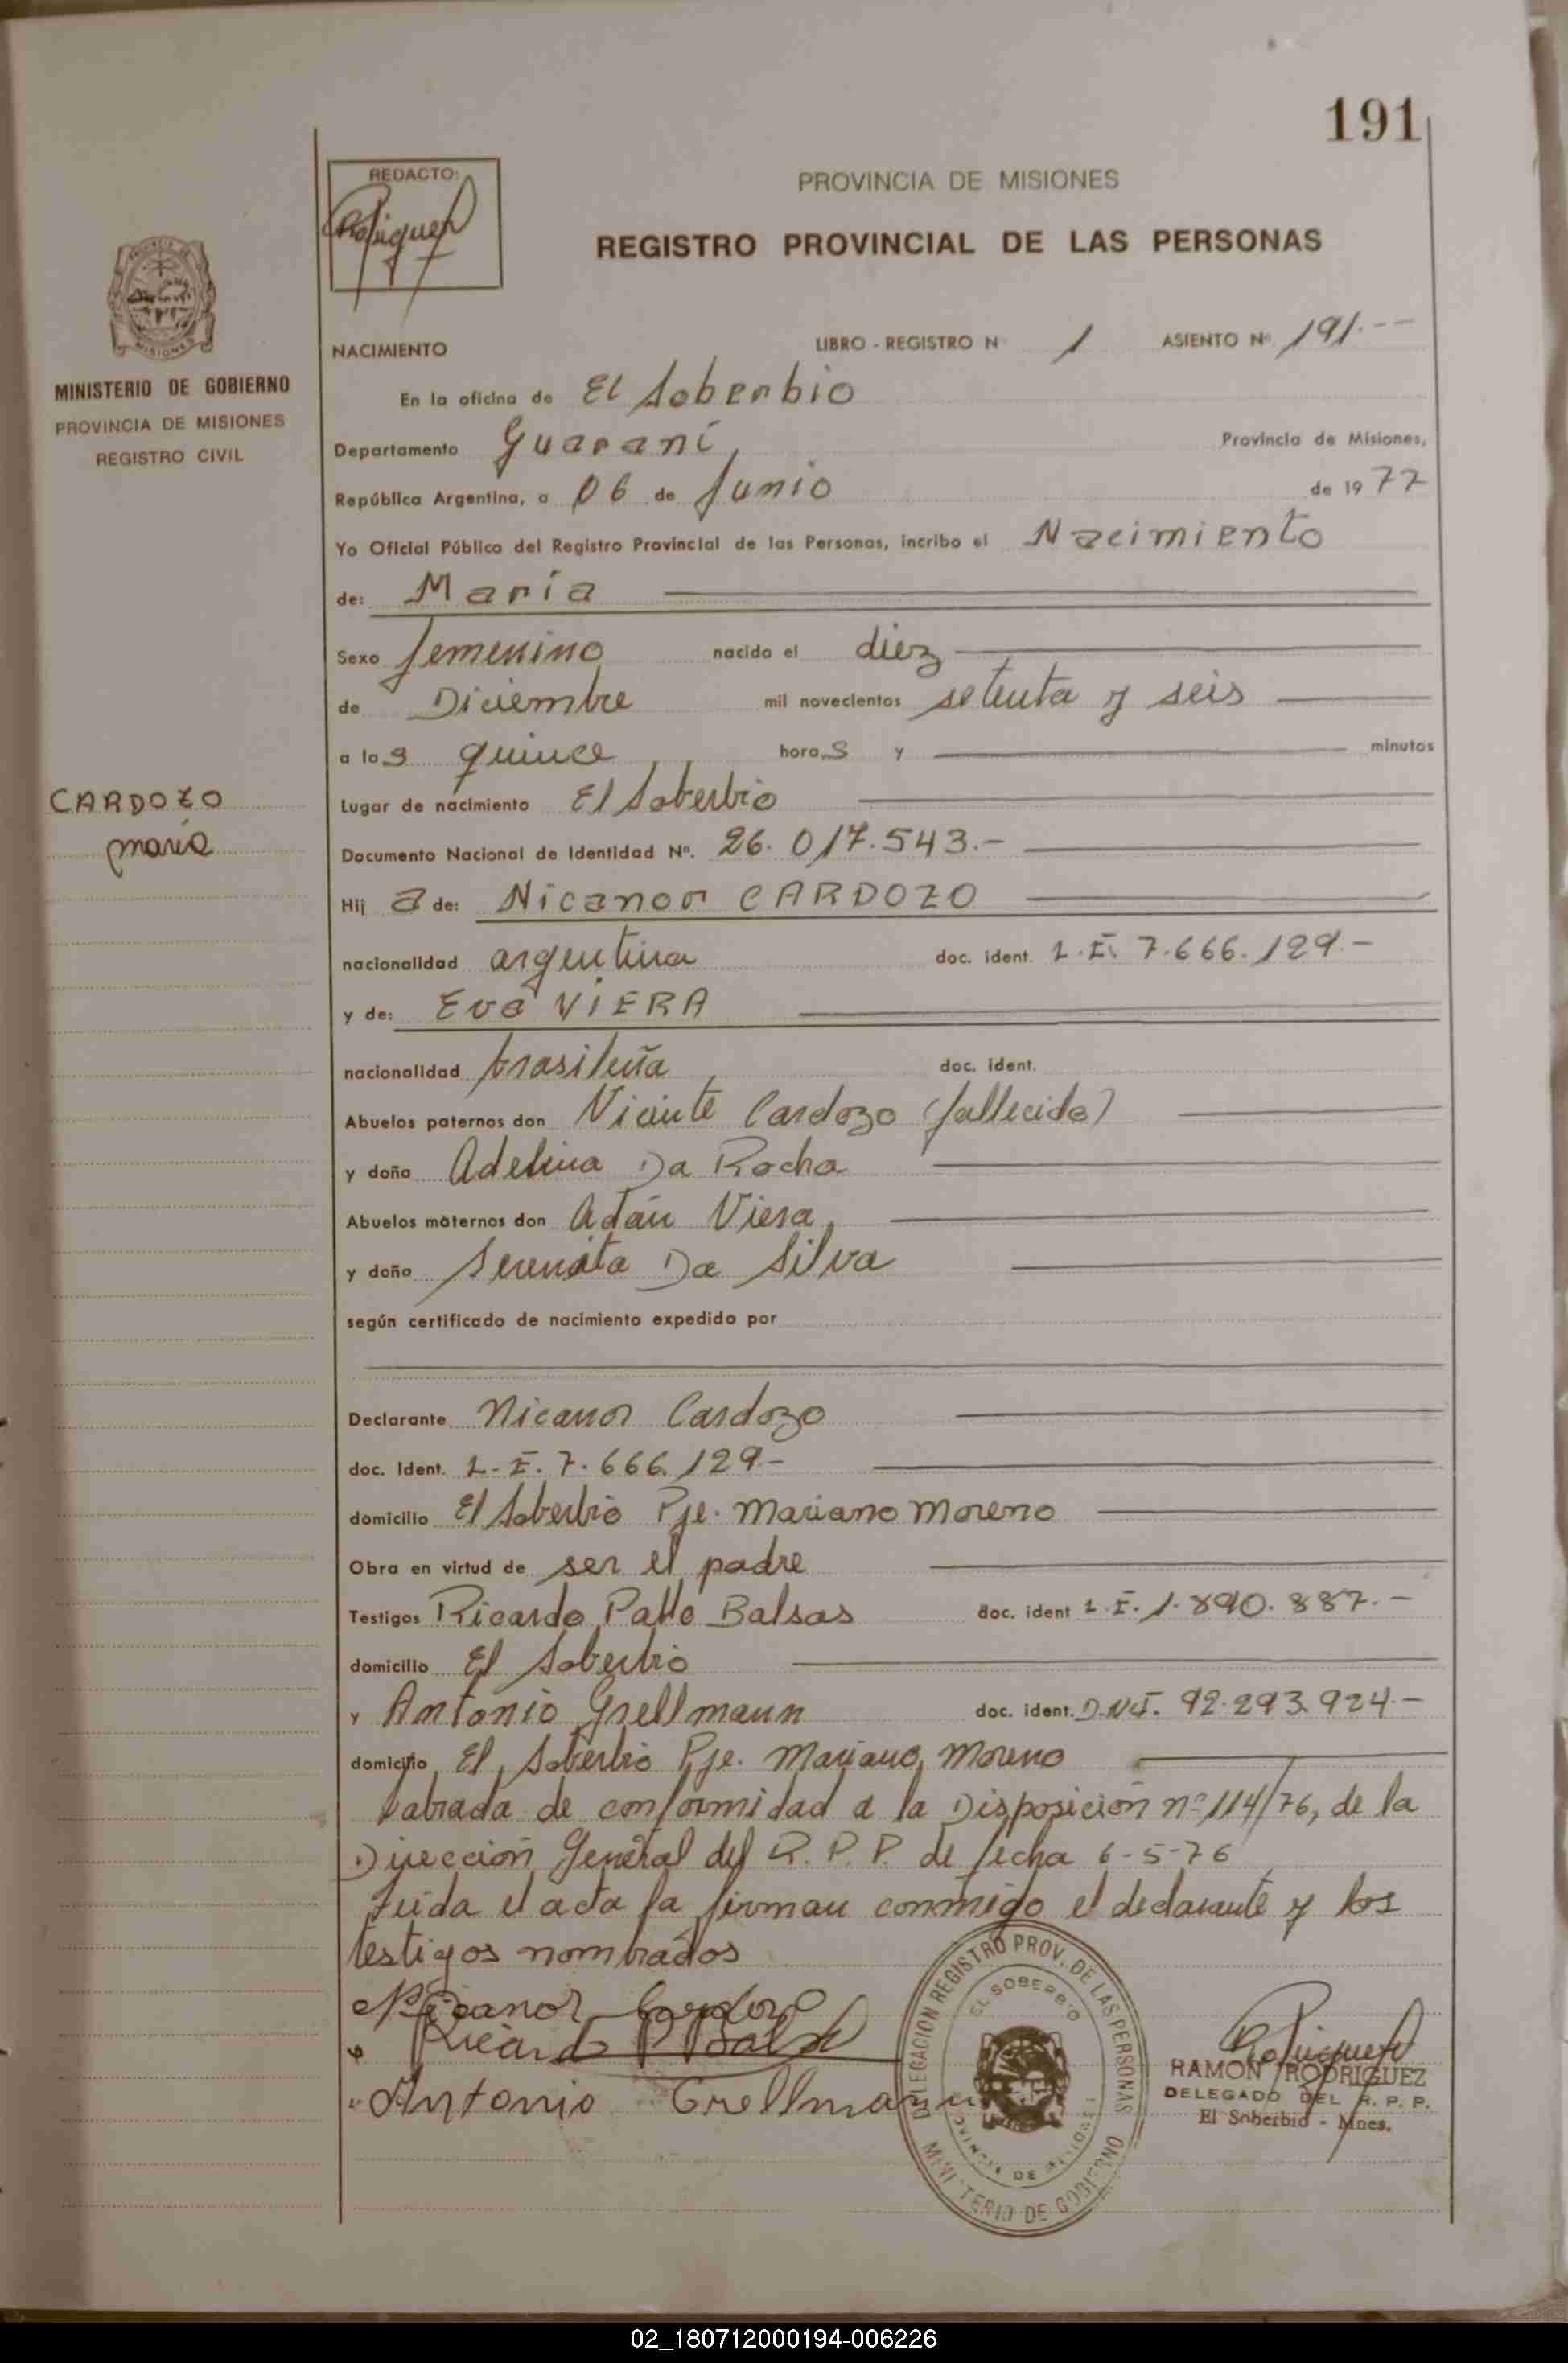 191
REDACTO:
PROVINCIA DE MISIONES
REGISTRO PROVINCIAL DE LAS PERSONAS
MISIONES
MINISTERIO DE GOBIERNO
PROVINCIA DE MISIONES
REGISTRO CIVIL
NACIMIENTO LIBRO - REGISTRO N 1 ASIENTO Nº 191.--
En la oficina de El Soberbio
Departamento Guaraní, Provincia de Misiones,
República Argentina, a 06 de Junio de 1977
Yo Oficial Público del Registro Provincial de las Personas, incribo el Nacimiento
de: María
Sexo femenino nacido el diez
de Diciembre mil novecientos setenta y seis
a las quince horas y minutos
CARDOZO
maría
Lugar de nacimiento El Soberbio
Documento Nacional de Identidad Nº. 26.017.543.-
Hija de: Nicanor CARDOZO
nacionalidad argentina doc. ident. L.E. 7.666.129.-
y de: Eva VIERA
nacionalidad brasileña doc. ident.
Abuelos paternos don Vicente Cardozo (fallecido)
y doña Adelina Da Rocha
Abuelos maternos don Adán Viera
y doña Da Silva
según certificado de nacimiento expedido por
Declarante Nicanor Cardozo
doc. Ident. L.E. 7.666.129-
domicilio El Soberbio Pje. Mariano Moreno
Obra en virtud de ser el padre
Testigos Ricardo Balsas doc. ident L.E. 1.890.887.-
domicilio El Soberbio
y Antonio Grellmann doc. ident. D.N.I. 92.293.924-
domicilio El Soberbio Pje. Mariano Moreno
labrada de conformidad a la Disposición nº 114/76, de la
Dirección General del R.P.P. de fecha 6-5-76
Leida el acta la firman conmigo el declarante y los
testigos nombrados
Nicanor Cardozo
Ricardo P Balsas
Antonio Grellmann
DELEGACION REGISTRO PROV. DE LAS PERSONAS
EL SOBERBIO
PROVINCIA DE MISIONES
MINISTERIO DE GOBIERNO
RAMON RODRIGUEZ
DELEGADO DEL R. P. P.
El Soberbio - Mnes.
02_180712000194-006226